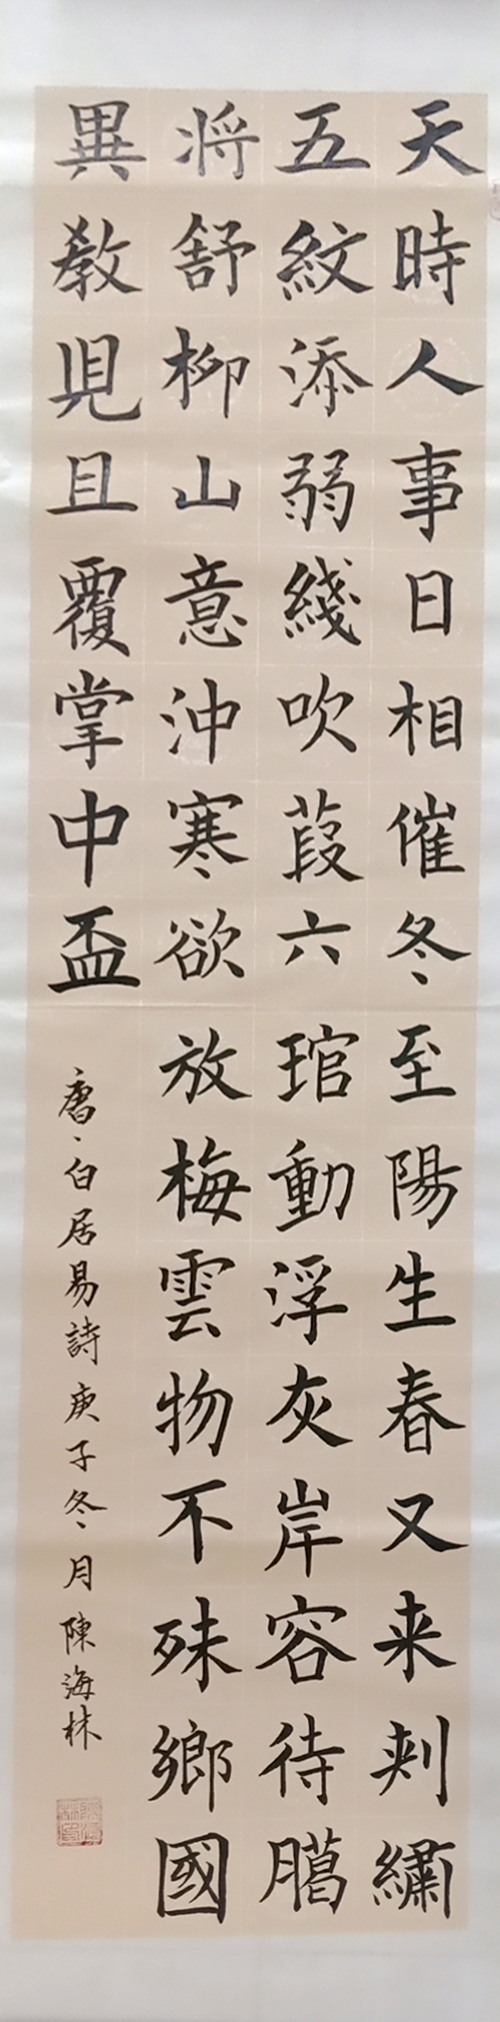 天時人事日相催冬至陽生春又来刾繡
五紋添弱綫吹葭六琯動浮灰岸容待臈
将舒柳山意沖寒欲放梅雲物不殊鄉國
異教兒且覆掌中盃
唐、白居易詩庚子冬月陳海林